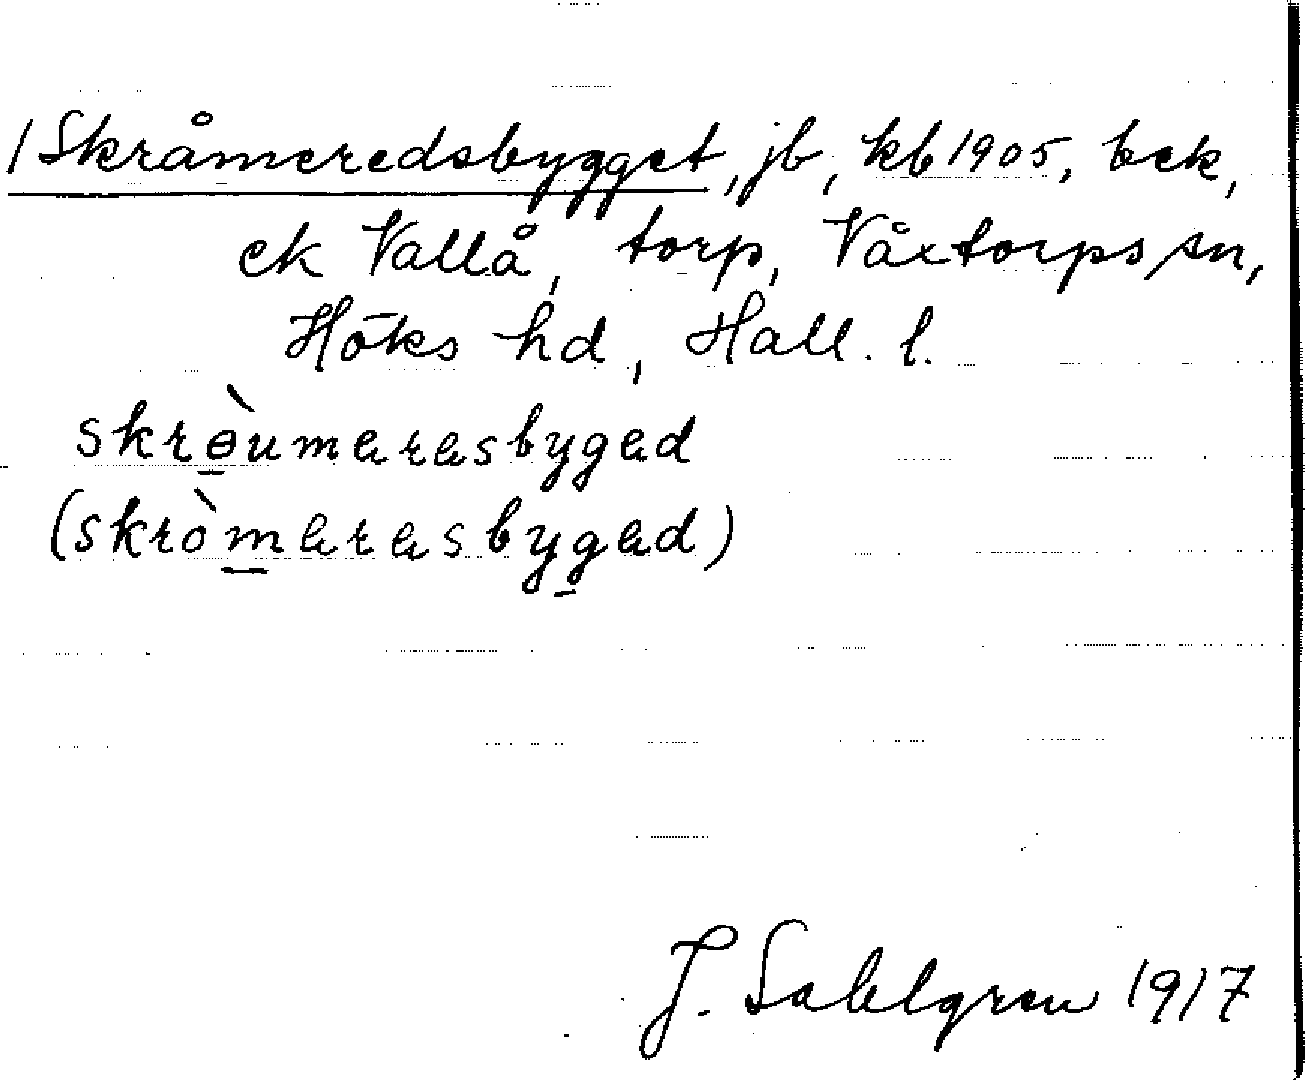 /Skråmeredsbygget, jb, kb 1905, bek,
ek Vallå, torp, Våxtorps sn,
Höks hd, Hall. l.
skrɵ̀umarasbygad
(skròmarasbygad)
J. Sahlgren 1917